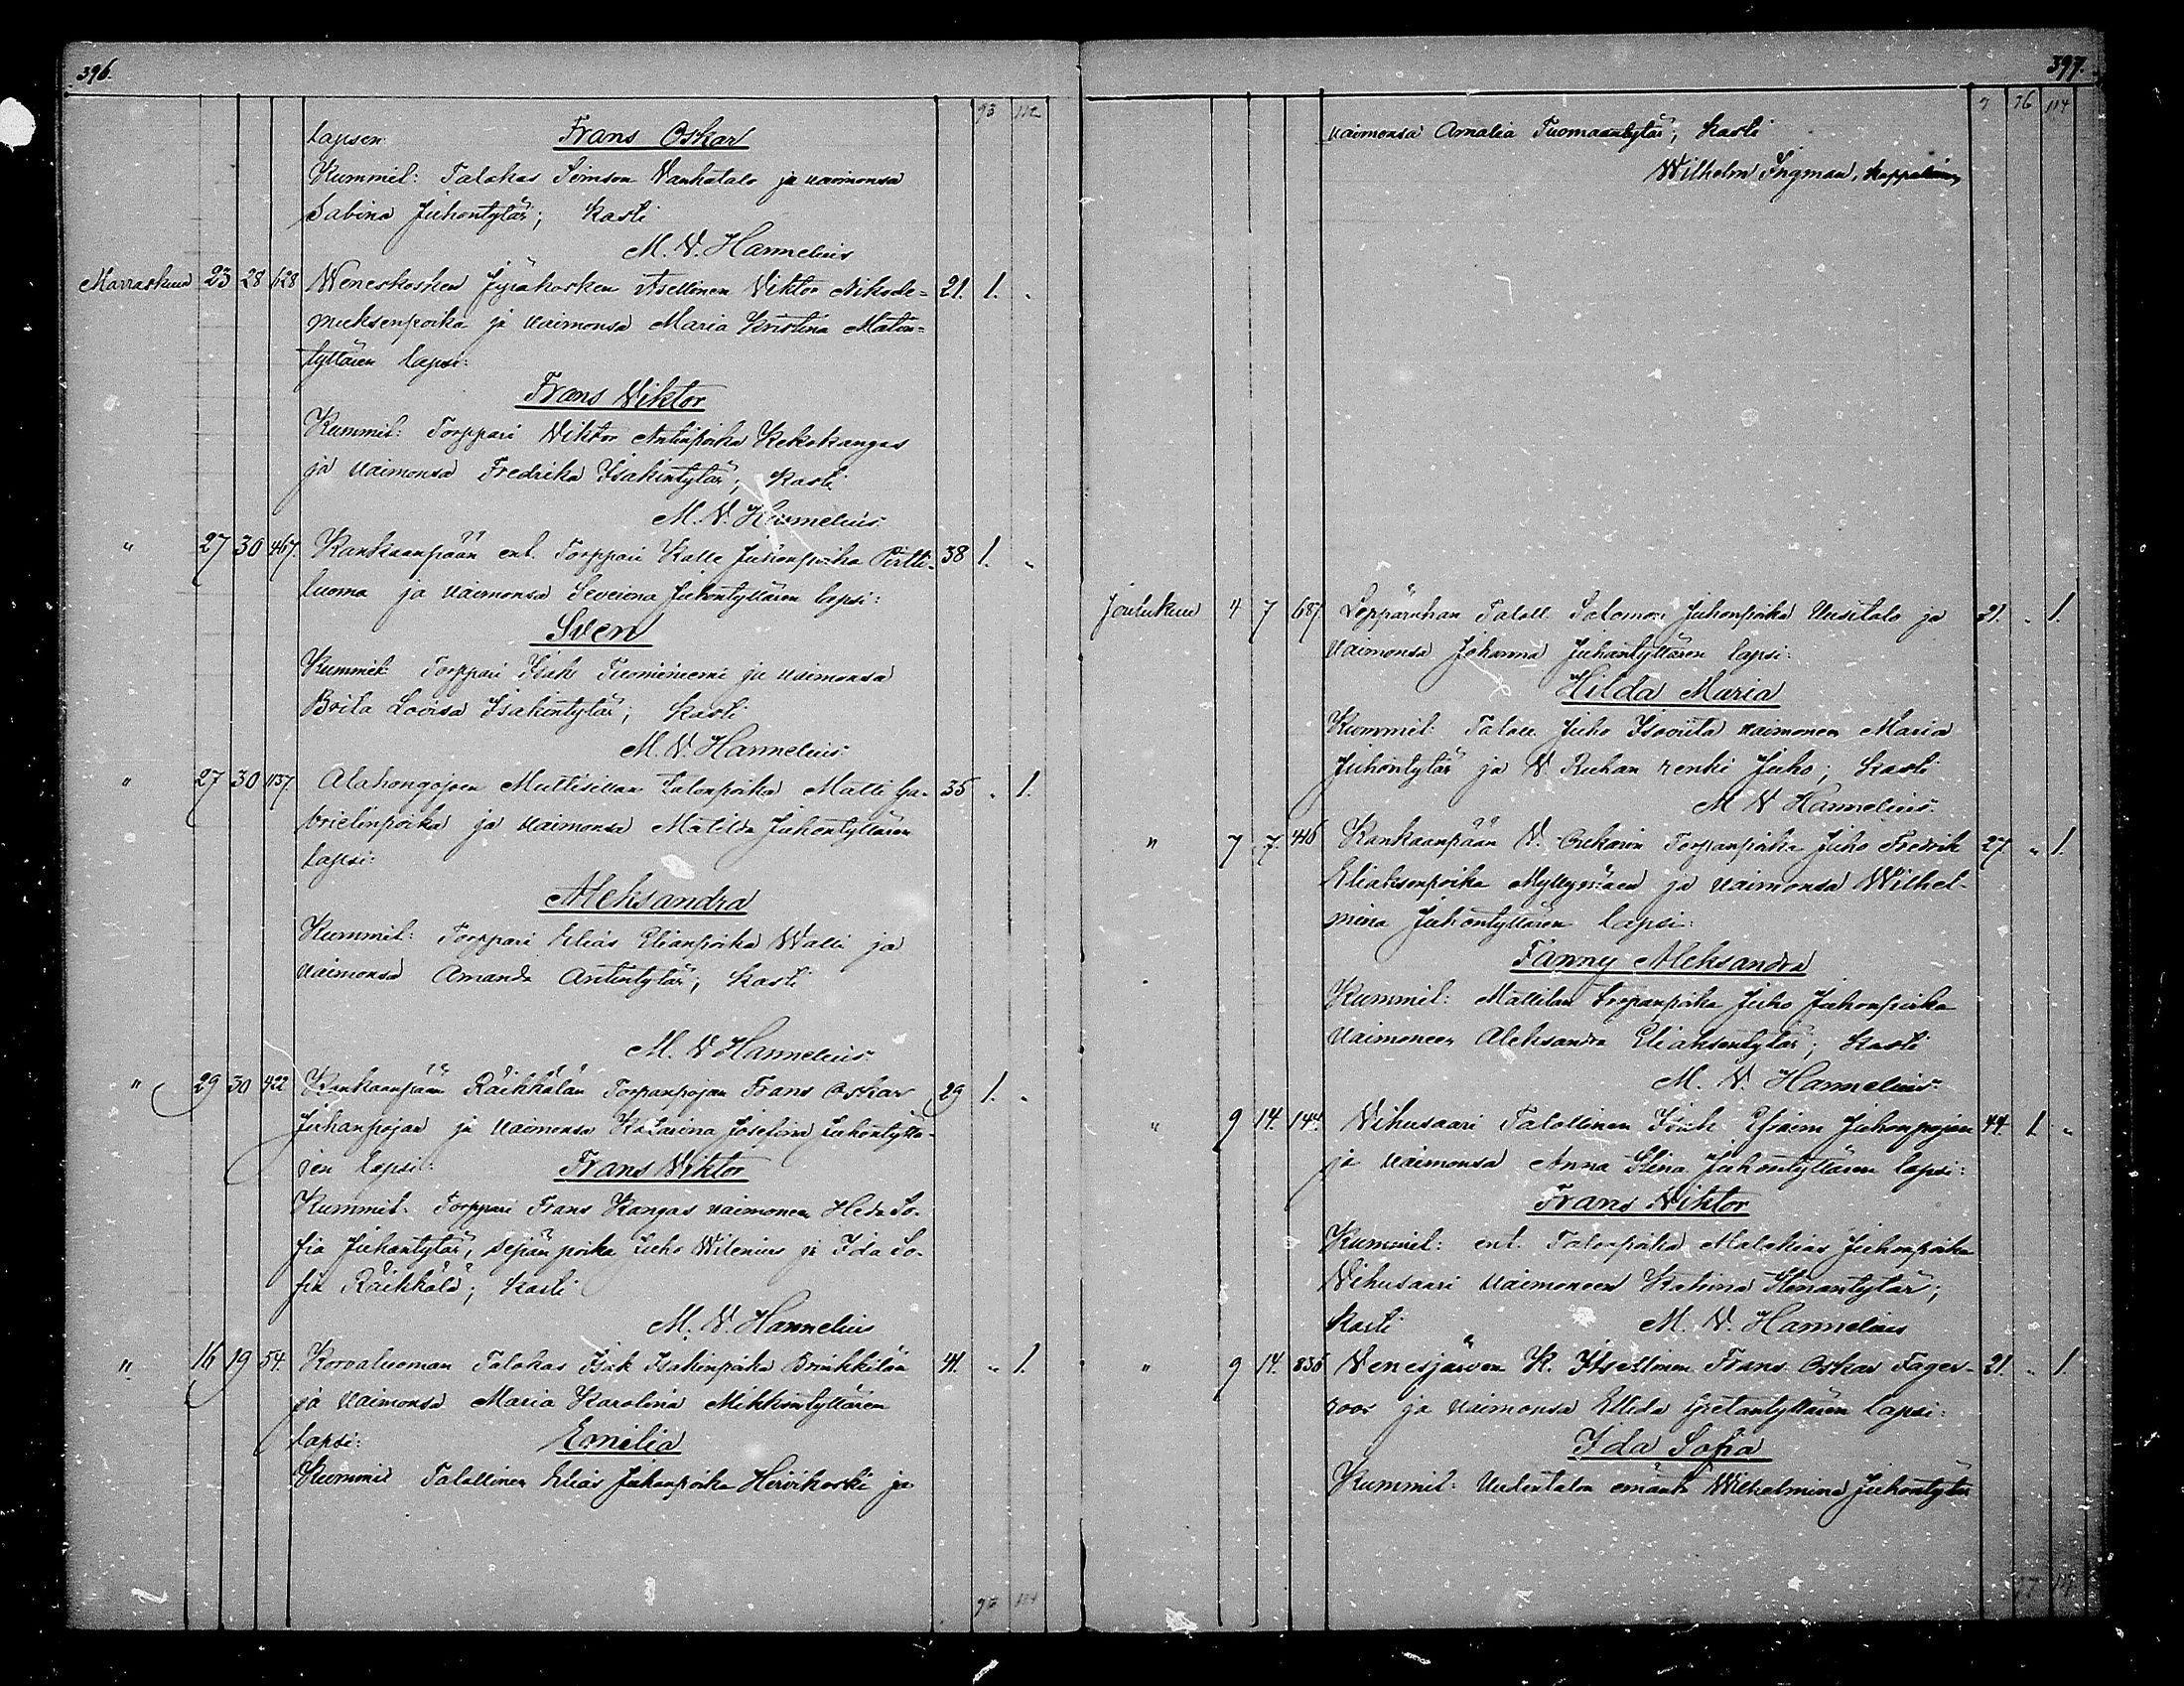 396.
93 112
lapsen: Frans Oskar
Kummit: Talokas Simson Vanhatalo ja vaimonsa
Sabina Juhontytär; Kasti
M. V. Hannelius
Marraskuu 23 28 628 Weneskosken Jyräkosken Itsellinen Viktor Nikode= 21. 1. "
muksenpoika ja vaimonsa Maria Kristina Matin=
tyttären lapsi:
Frans Viktor
Kummit: Torppari Viktor Antinpoika Kekokangas
ja vaimonsa Fredrika Isakintytär; Kasti
M. V. Hannelius
" 27 30 467. Kankaanpään ent. Torppari Kalle Juhonpoika Pertti= 38 1. "
luoma ja vaimonsa Juhontyttären lapsi:
Sven
Kummit: Torppari Isak Tuominiemi ja vaimonsa
Brita Lovisa Isakintytär; Kasti
M. V. Hannelius
" 27 30 1137. Alahongojoen talonpoika Matti Ga= 35 " 1.
brielinpoika ja vaimonsa Matilda Juhontyttären
lapsi:
Aleksandra
Kummit: Torppari Elias Elianpoika Walli ja
vaimonsa Amanda Antintytär; Kasti
M. V. Hannelius
" 29 30 422 Kankaanpään Räikkälän Torpanpojan Frans Oskar 29 1. "
Juhanpojan ja vaimonsa Katarina Josefina Juhontyttä=
ren lapsi: Frans Viktor
Kummit: Torppari Frans Kangas vaimoneen Heda So=
fia Juhantytär, sepän poika Juho Wilenius ja Ida So=
fia Räikkälä; Kasti
M. V. Hannelius
" 16 19 54. Korvaluoman Talokas Isak Isakinpoika Brinkkilän 41. " 1.
ja vaimonsa Maria Karolina Mikkontyttären
lapsi: Emilia
Kummit Talollinen Elias Juhanpoika Hirvikoski ja
397.
76 114
vaimonsa Amalia Tuomaantytär; Kasti
Wilhelm Ingman, Kappalainen
Joulukuu 4 7 687 Leppäruhan Taloll. Salomon Juhonpoika Uusitalo ja 21. " 1.
vaimonsa Johanna Juhantyttären lapsi:
Hilda Maria
Kummit: Taloll. Juho vaimoneen Maria
Juhontytär ja V. Ruhan renki Juho; Kasti
M V Hannelius
" 7 7. 416 Kankaanpään V. Torpanpoika Juho Fredrik 27. " 1.
Eliaksenpoika Myllymäen ja vaimonsa Wilhel=
mina Juhontyttären lapsi:
Fanny Aleksandra
Kummit: Mattilan Torpanpoika Juho Juhonpoika
vaimoneen Aleksandra Eliaksentytär; Kasti
M. V. Hannelius
" 9 14. 144. Vihusaari Talollinen Isak Efraim Juhonpojan 44. 1. "
ja vaimonsa Anna Stina Juhontyttären lapsi:
Frans Viktor
Kummit: ent. Talonpoika Malakias Juhonpoika
Vihusaari vaimoneen Katrina
Kasti M. V. Hannelius
" 9 14. 836 Venesjärven K. Itsellinen Frans Oskar Fager= 21. " 1.
roos ja vaimonsa Gretantyttären lapsi:
Ida Sofia
Kummit: Uudentalon emäntä Wilhelmina Juhontytär